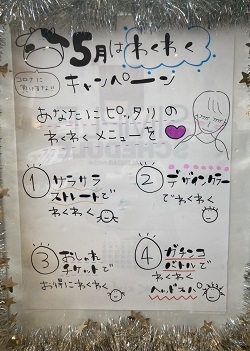 5月はわくわく
コロナに
負けるな!!
キャンペーン
あなたにピッタリの
わくわくメニューを
① サラサラ
ストレートで
わくわく
② デザインカラー
でわくわく
③ おしゃれ
チケットで
お得にわくわく
④ ガチンコ
バトルで
わくわく
ヘッドスパ